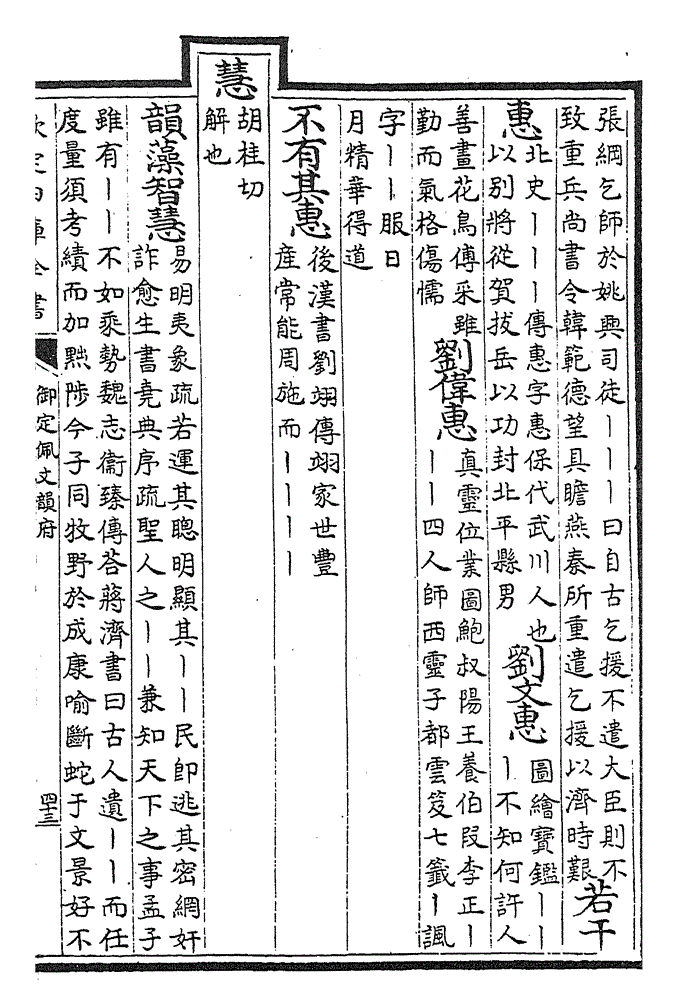 張綱乞師於姚興司徒丨丨丨曰自古乞援不遣大臣則不
致重兵尚書令韓範德望具瞻燕秦所重遣乞援以濟時艱
若干
惠
北史丨丨丨傳惠字惠保代武川人也
以別將從賀拔岳以功封北平縣男
劉文惠
圖繪寶鑑丨丨
丨不知何許人
善畫花鳥傅采雖
勤而氣格傷懦
劉偉惠
真靈位業圖鮑叔陽王養伯段李正丨
丨丨四人師西靈子都雲笈七籤丨諷
字丨丨服日
月精華得道
不有其惠
後漢書劉翊傳翊家世豐
産常能周施而丨丨丨丨
慧
胡桂切
解也
韻藻智慧
易明夷象疏若運其聰明顯其丨丨民即逃其密網奸
詐愈生書堯典序疏聖人之丨丨兼知天下之事孟子
雖有丨丨不如乘勢魏志衞臻傳荅蔣濟書曰古人遺丨丨而任
度量須考績而加黜陟今子同牧野於成康喻斷蛇于文景好不
欽定四庫全書
御定佩文韻府
四十三